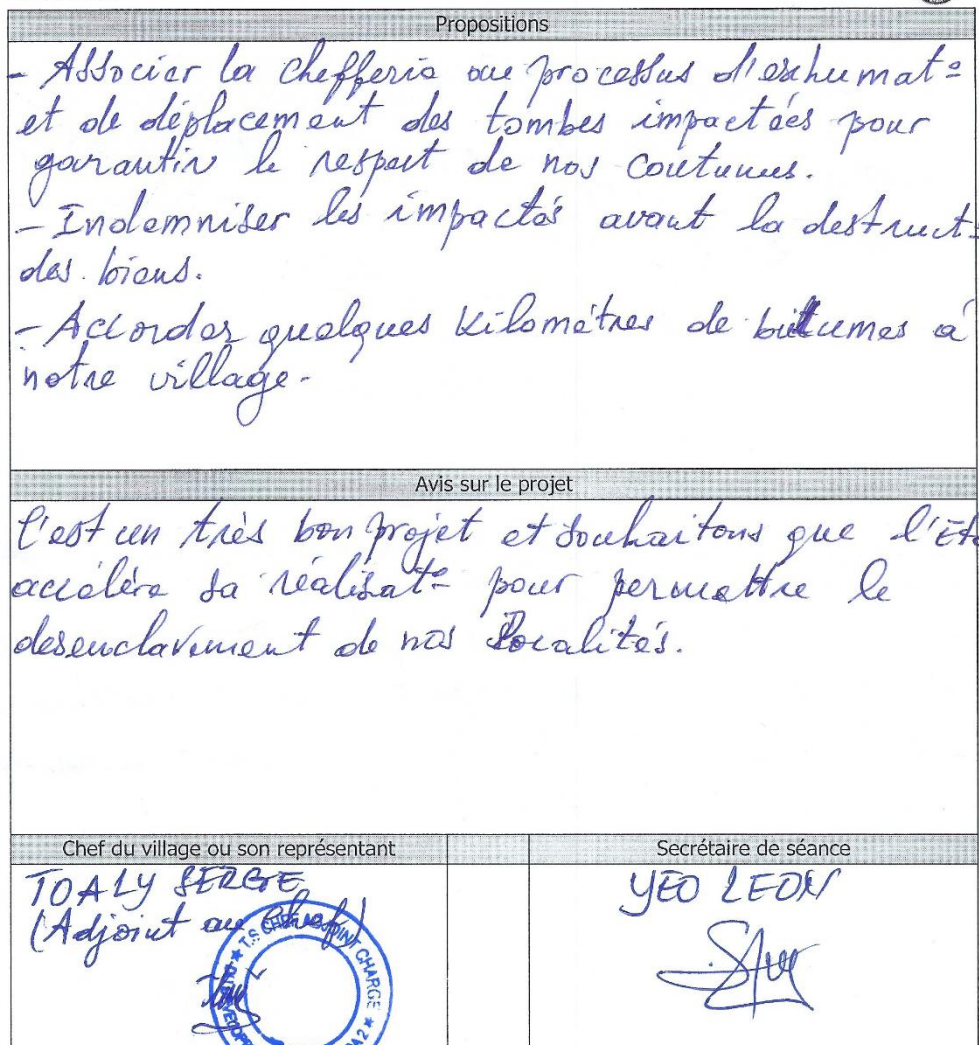 Propositions
- Associer la chefferie au processus d'exhumat°
et de déplacement des tombes impactées pour
garantir le respect de nos coutumes.
- Indemniser les impactés avant la destruct°
des biens.
- Accorder quelques Kilomètres de bitumes à
notre village.
Avis sur le projet
C'est un très bon projet et souhaitons que l'Éta
accélère sa réalisat° pour permettre le
desenclavement de nos localités.
Chef du village ou son représentant
Secrétaire de séance
TOALY SERGE
(Adjoint au Chef)
YEO LEON
T.S. CHEF ADJOINT CHARGE